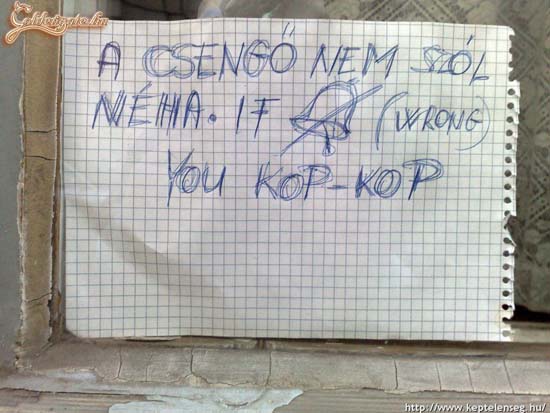 A CSENGŐ NEM SZÓL
NÉHA. IF (WRONG)
YOU KOP-KOP
http://www.keptelenseg.hu/